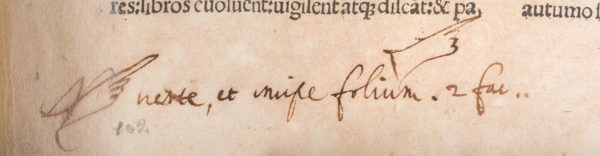 res:libros euoluent:uigilent atq; discāt:& pa, autumo s
verte, et inuise folium. 2 fac..
102